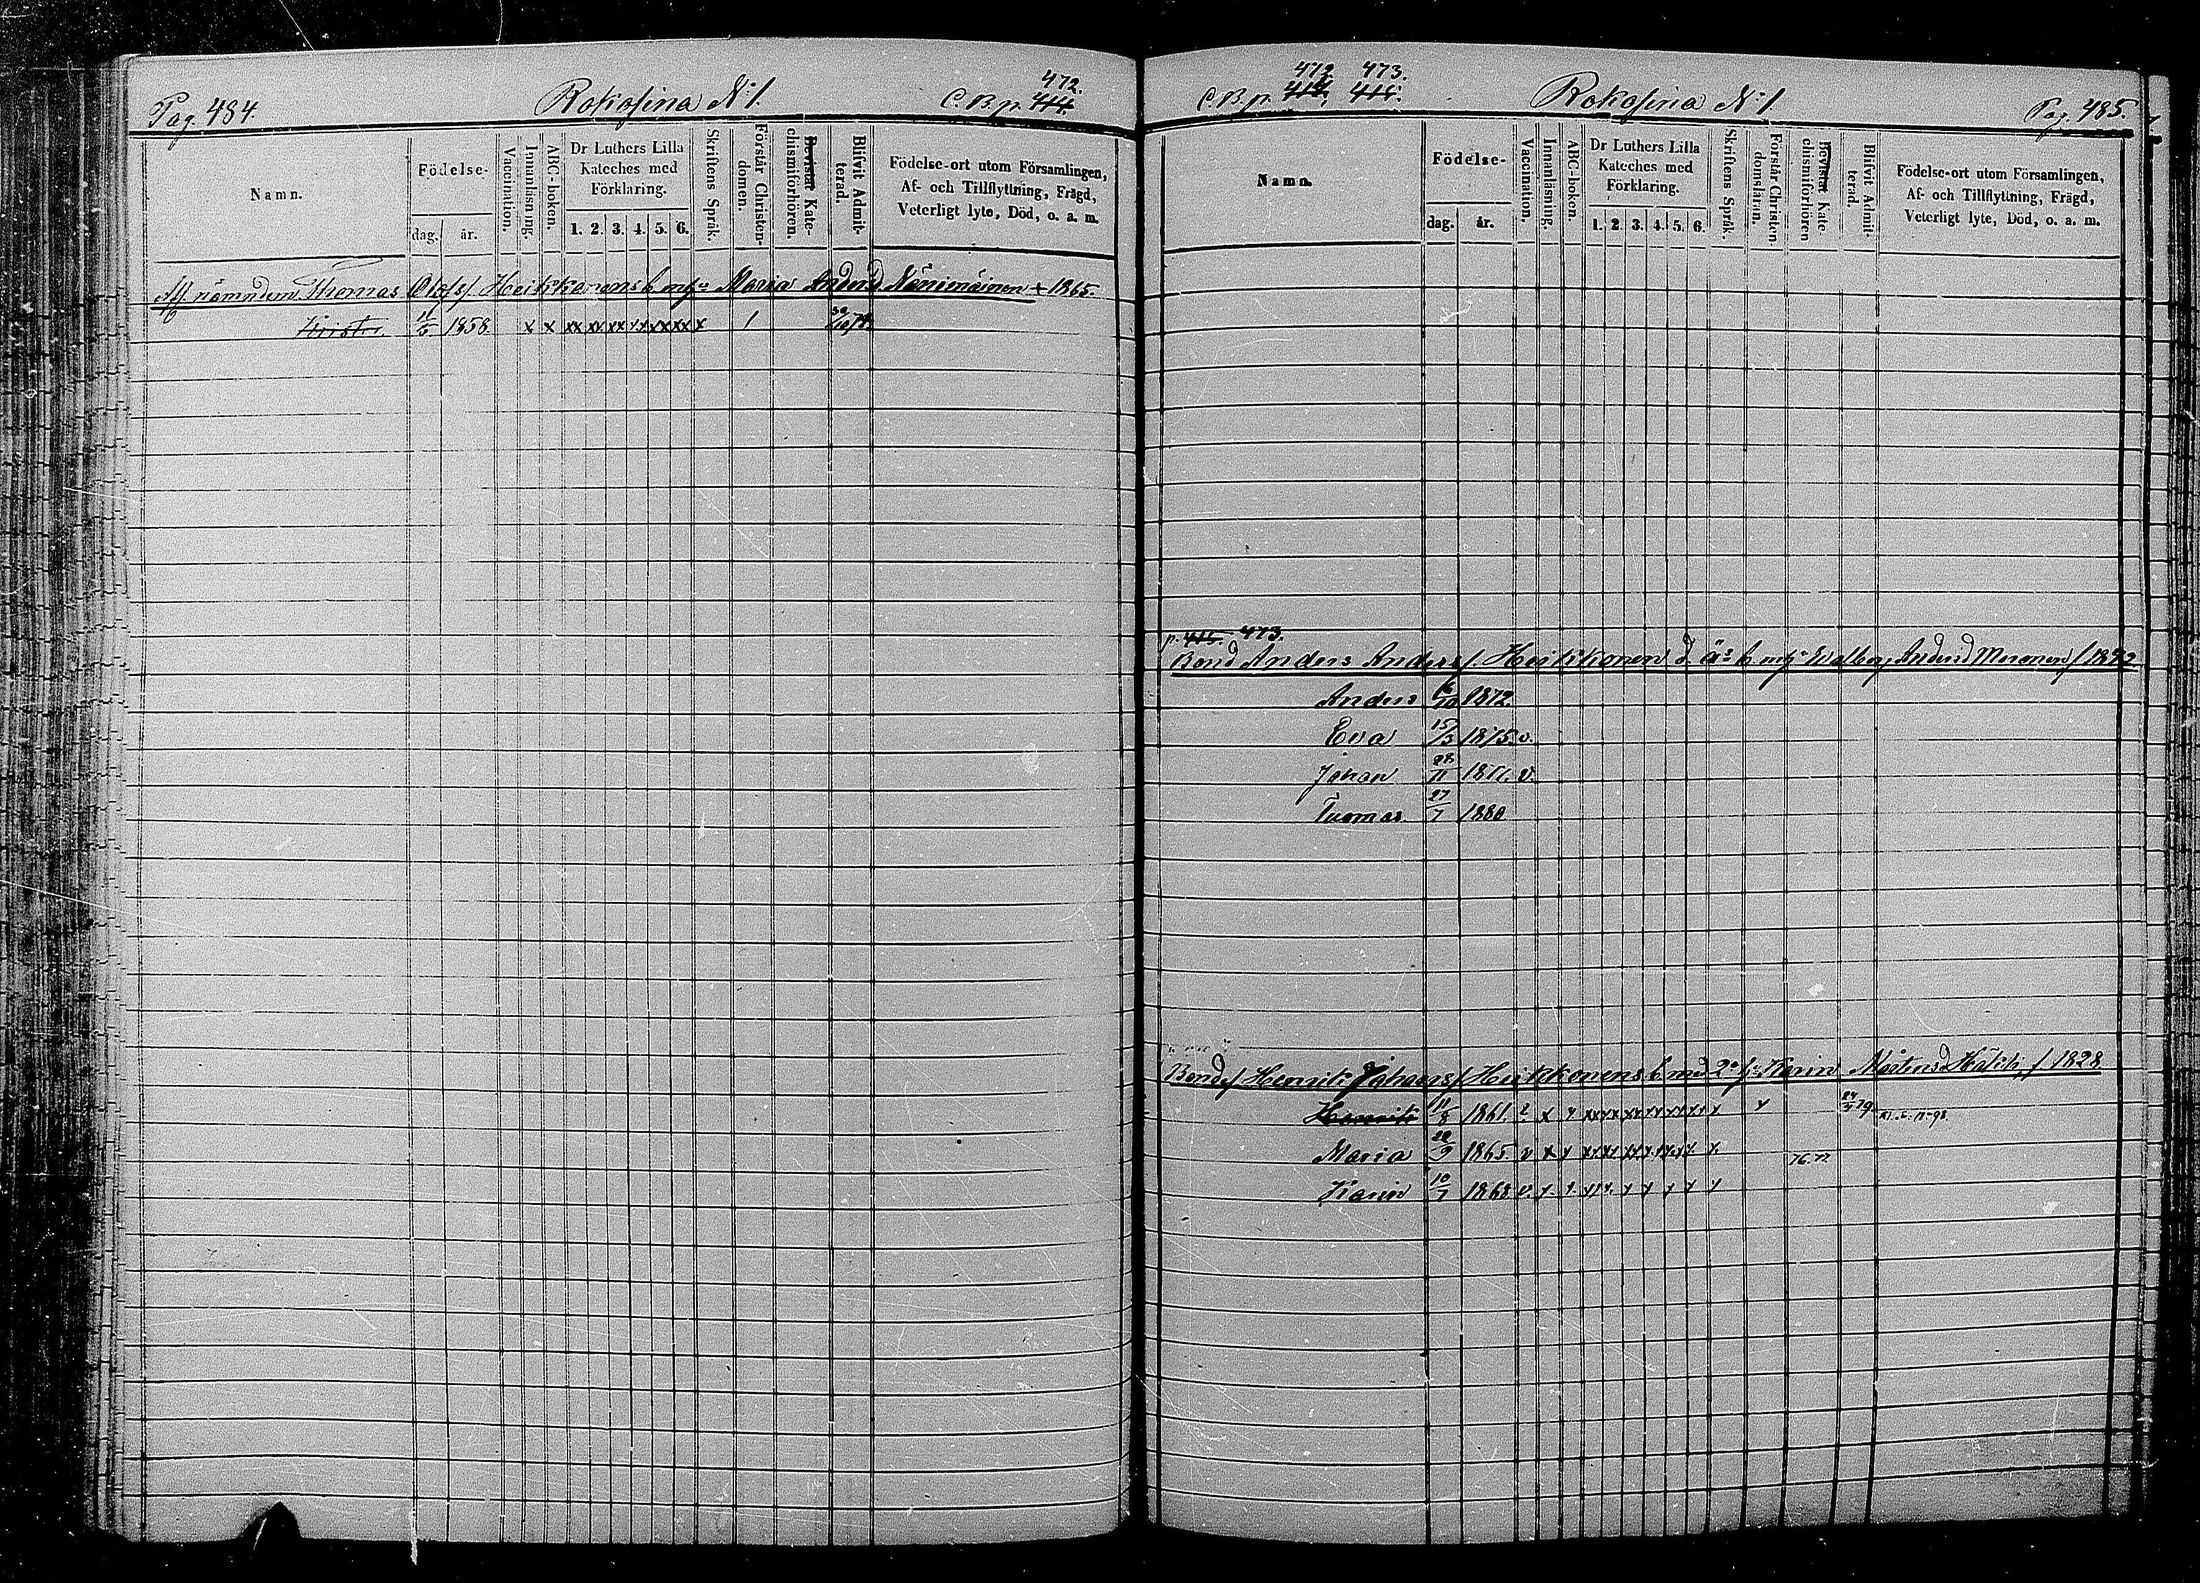 Pag. 484.
Rokosina N:o 1.
C.B.p. 414. 472.
Namn.
Födelse-
dag. år.
Vaccination.
Innanläsning.
ABC-boken.
Dr Luthers Lilla Kateches med Förklaring.
1. 2. 3. 4. 5. 6.
Skriftens Språk.
Förstår Christendomen.
Bevistat Katechismiförhören.
Blifvit Admitterad.
Födelse-ort utom Församlingen,
Af- och Tillflyttning, Frägd,
Veterligt lyte, Död, o. a. m.
Af. nämndem. Thomas Olofs/. Heikkonens b m/ Maria And:rsd Nänimäinen + 1865.
11/5 1858. x x xx xx xx xx xx xx x /
C.B.p. 414, 415. 472 473.
Rokosina N:o 1
Pag. 485.
Namn.
Födelse-
dag. år.
Vaccination.
Innanläsning.
ABC-boken.
Dr Luthers Lilla Kateches med Förklaring.
1. 2. 3. 4. 5. 6.
Skriftens Språk.
Förstår Christendomsläran.
Bevistat Katechismiförhören
Blifvit Admitterad.
Födelse-ort utom Församlingen,
Af- och Tillflyttning, Frägd,
Veterligt lyte, Död, o. a. m.
p. 415. 473.
Bond Anders Anders/. Heikkonen d. ä:s b m/ Walbor Andersd Moronen /
Anders 16/10 1872.
Eva 15/3 1875. v.
Johan 28/11 v.
Tuomas 27/7 1880
Bonde/ Henrik Johans/ Heikkonens b med 2:a h: Karin Mårtensd / 1828
Henrik 11/8 1861. x x xx xx xx xx xx xx x x
Maria 28/9 1865. v x x xx xx xx xx xx xx x. 76. 77.
Karin 10/7 1868 v. x. x. x x x x x x x